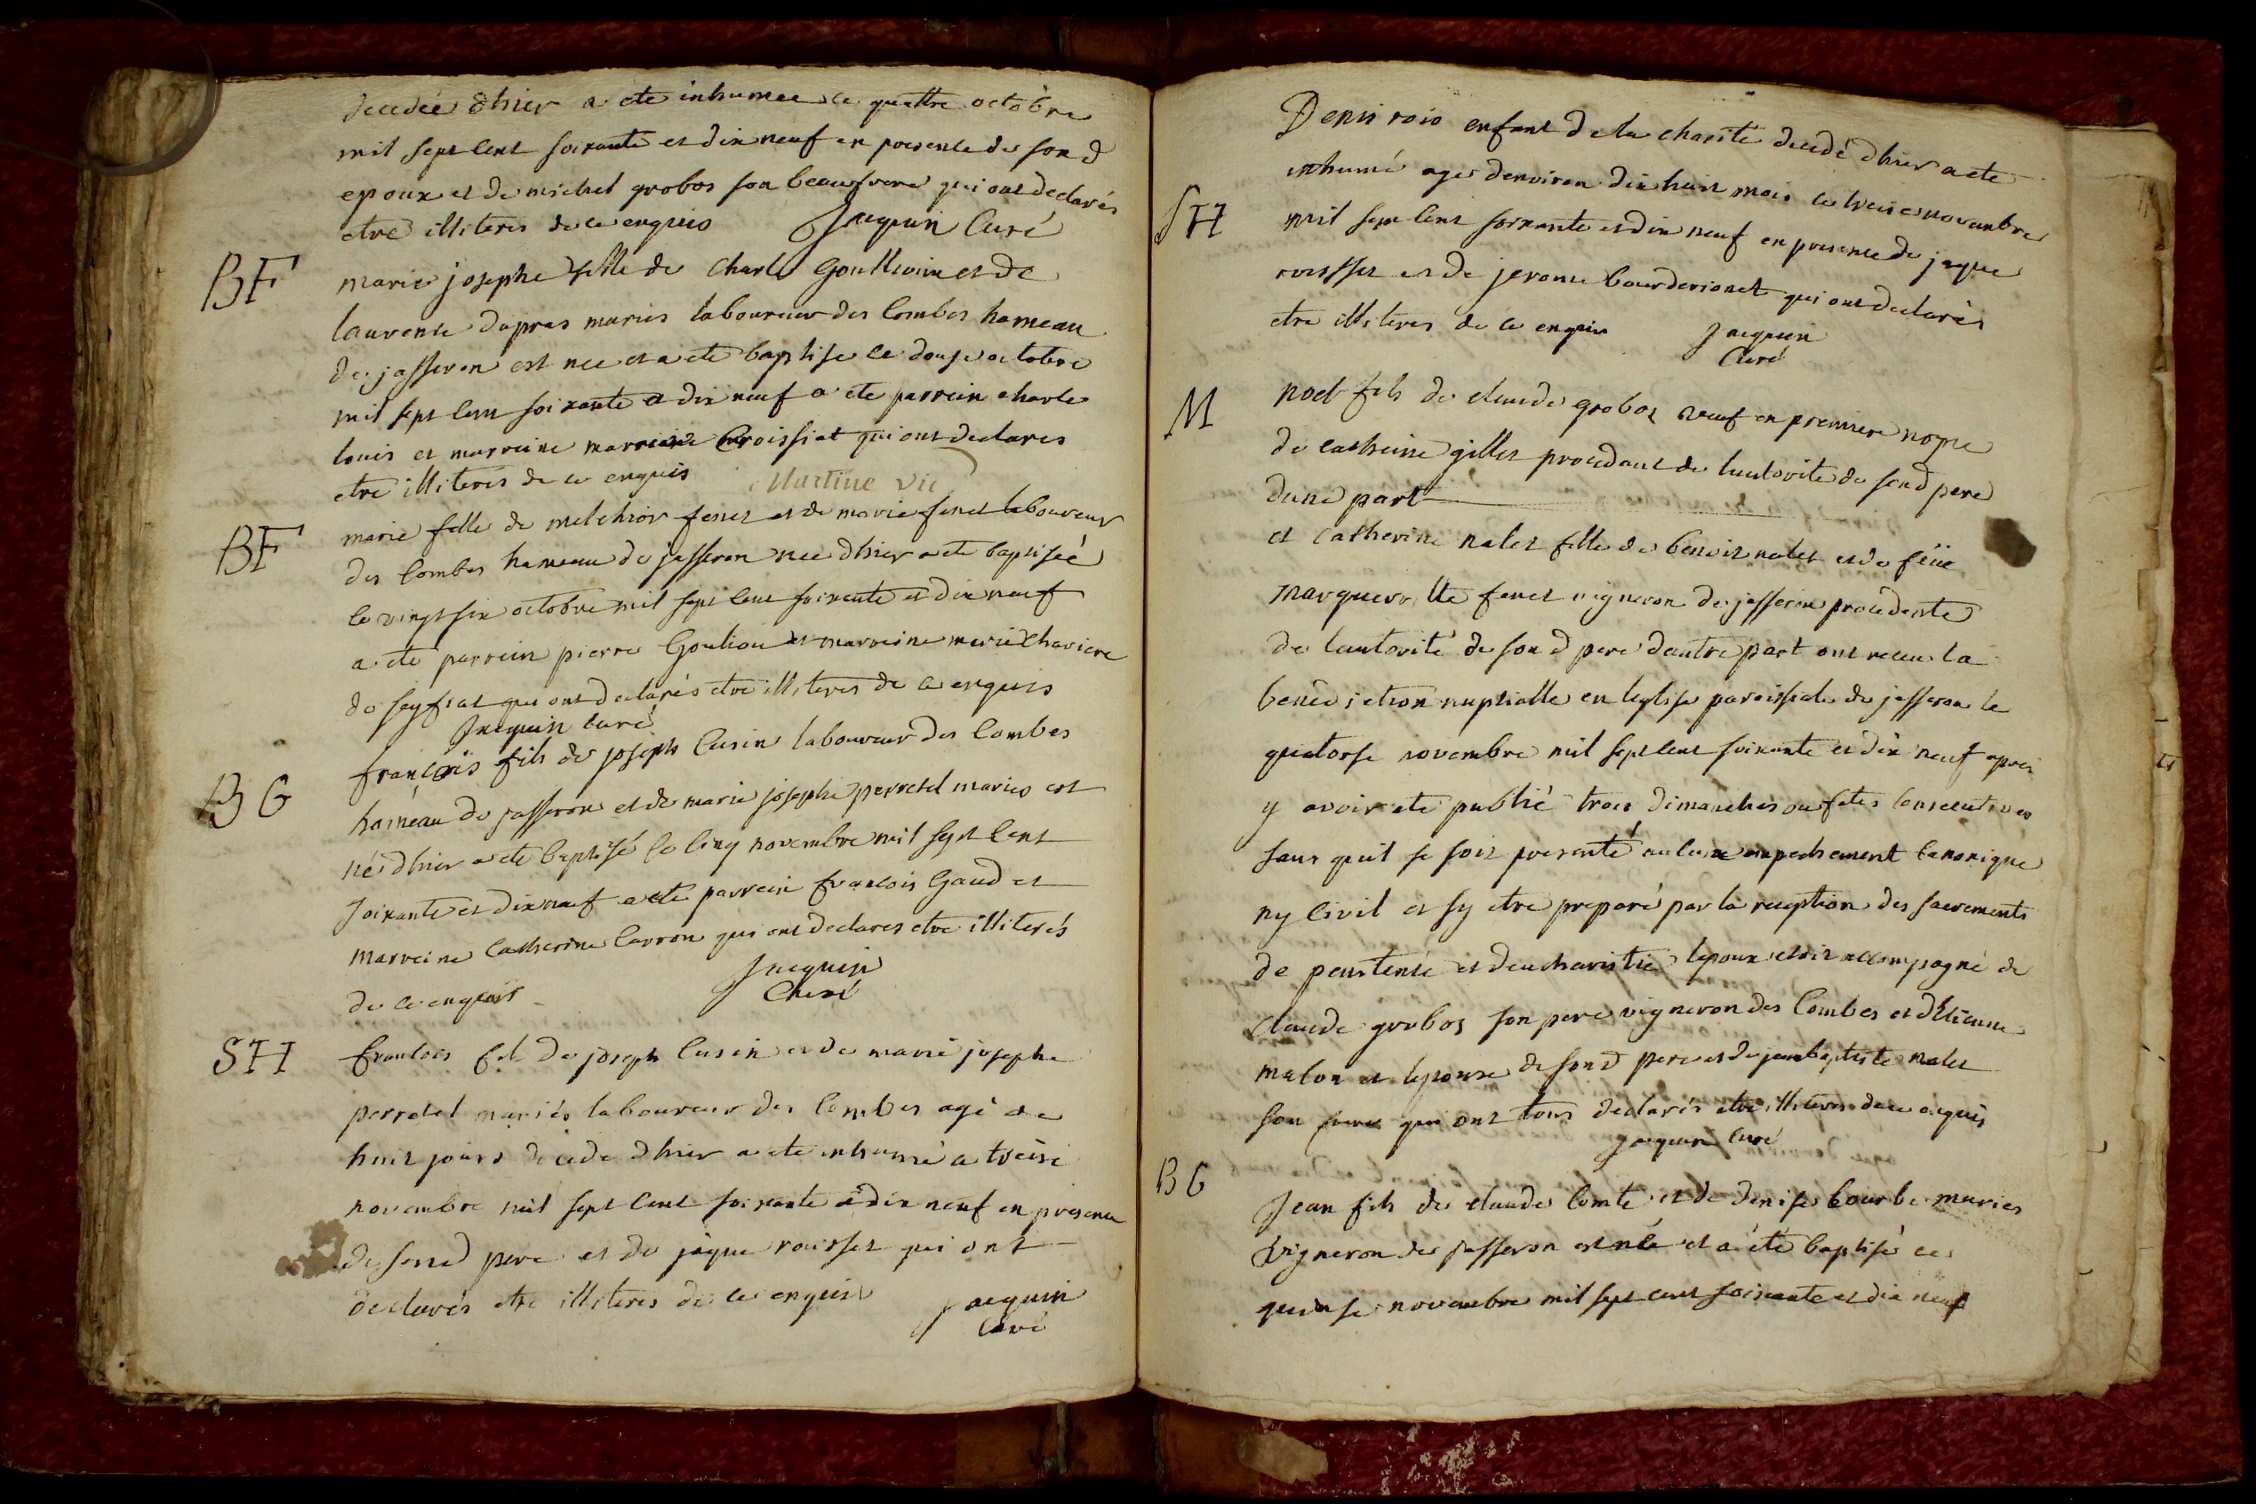 decedée dhier a ete inhumee ce quattre octobre
mil sept cent soixante et dix neuf en presence de son d
epoux et de michel grobos son beaufrere qui ont declarés
etre illiteres de ce enquis Jacquin Curé
BF
marie josephe fille de Charle Goullioin et de
laurence dupras maries laboureur des Combes hameau
de jasseron est nee et a ete baptise ce douse octobre
mil sept cent soixante et dix neuf a ete parrein charle
louis et marreine marreine Croissiat qui ont declares
etre illiteres de ce enquis Martine vic
BF
marie fille de melchior fenet et de marie fenet laboureur
des Combes hameau de jasseron nee dhier a ete baptisée
le vingt six octobre mil sept cent soixante et dix neuf
a ete parrein pierre Goulion et marreine marie Chaviere
de seyfiat qui ont declarés etre illiteres de ce enquis
Jacquin curé
BG
françois fils de joseph Cusin laboureur des Combes
hameau de jasseron et de marie josephe perretel maries est
né dhier a ete baptisé le cinq novembre mil sept cent
soixante et dix neuf a ete parrein francois Gaud et
marreine Catherine Carron qui ont declares etre illiterés
de ce enquis Jacquin
Curé
SH
francois fil de joseph Cusin et de marie josephe
perretel mariés laboureur des Combes agé de
huit jours decede dhier a ete inhumé a treise
novembre mil sept cent soixante et dix neuf en presence
de son d pere et de jaque roisset qui ont
declarés etre illiteres de ce enquis Jacquin
Curé
Denis rois enfant de la charité decedé dhier a ete
SH
inhumé age denviron dix huit mois ce treise novembre
mil sept cent soixante et dix neuf en presence de jaque
roisset et de jerome bourderionet qui ont declarés
etre illiteres de ce enquis Jacquin
Curé
M
noel fils de claude grobos veuf en premiere nopce
de catherine gillet procedant de lautorite de son d pere
dune part
et Catherine nalet fille de benoit nalet et de feüe
margueritte fenet vigneron de jasseron procedente
de lautorité de son d pere dautre part ont receu la
benediction nuptialle en leglise paroissiale de jasseron le
quatorse novembre mil sept cent soixante et dix neuf apres
y avoir ete publié trois dimanches ou fetes consecutives
sans quil se soit presenté aucune empechement canonique
ny Civil et sy etre preparé par la reception des sacrements
de penitence et deucharistie lepoux etoit accompagné de
claude grobos son pere vigneron des Combes et détienne
maton et lepouse de son d pere et de jean baptiste nalet
son frere qui ont tous declarés etre illiteres de ce enquis
jacquin curé
BG
Jean fils de claude Comte et de denise bourbe maries
vigneron de jasseron est né et a été baptisé ce
quinse novembre mil sept cent soixante et dix neuf